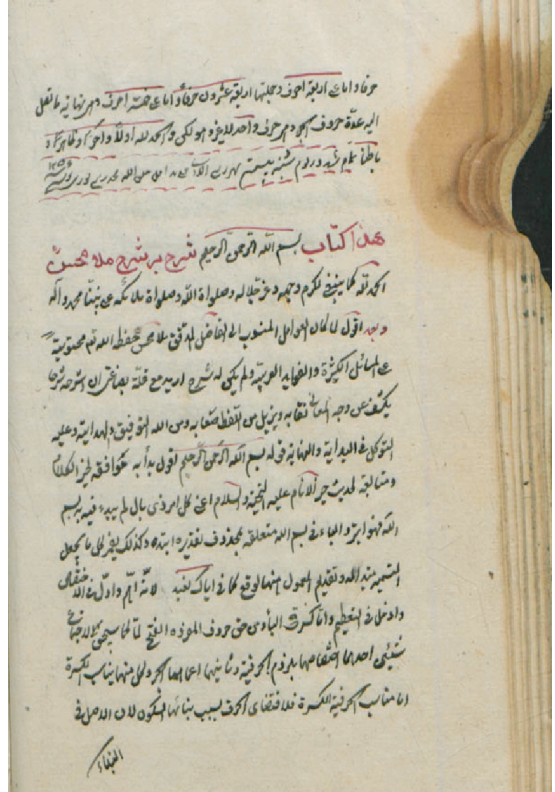 حرفا واما على اربعة احرف وجملتها اربعة عشرون حرفا واما على خمسة احرف وهى نهاية ما تصل
اليه عدة حروف الجر وهى حرف واحد لا غير وهو لكن والحمد لله اولا وآخرا وظاهرا و
باطنا تمام شد در يوم شنبه بيستم شهر
هذا كتاب بسم الله الرحمن الرحيم شرح بر شرح ملا محسن
الحمد لله كما ينبغى لكرم وجهه وعز جلاله وصلواة الله وصلواة ملائكته على نبينا محمد وآله
وبعد اقول لما كان العوامل المنسوب الى الفاضل المدقق ملا محسن حفظه الله تم محتوية
على المسائل الكثيرة والفوايد الغريبة ولم يكن له شرح اريد مع قلة بضاعتى ان اشرحه شرحا
يكشف عن وجه المعانى نقابه ويزيل من اللفظ صعابه ومن الله التوفيق والهداية وعليه
التوكل فى البداية والنهاية قوله بسم الله الرحمن الرحيم اقول بدأ به موافقة لخير الكلام
ومتابعة لحديث خير الانام عليه التحية والسلام اعنى كل امر ذى بال لم يبدء فيه ببسم
الله فهو ابتر والباء فى بسم الله متعلقة بمحذوف تقديره ابتدء وكذلك يضمر كل ما يجعل
التسمية مبتدا له وتقديم المعمول منها اوقع كما فى اياك نعبد لانه اهم وادل على
وادخل فى التعظيم وانما كسرت الباء ومن حق حروف المفردة الفتح
شيئين احدهما اختصاصها بلزوم الحرفية وثانيهما اعمالها الجر وكل منهما يناسب الكسرة
اما مناسب الحرفية الكسرة فلاقتضاء الحرف بسبب بنائها السكون لان الاصل فى
البناء